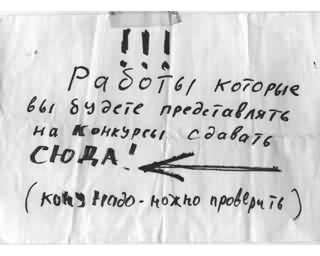 !!!
Работы которые
вы будете представлять
на конкурсы сдавать
СЮДА!
(кому надо - можно проверить)